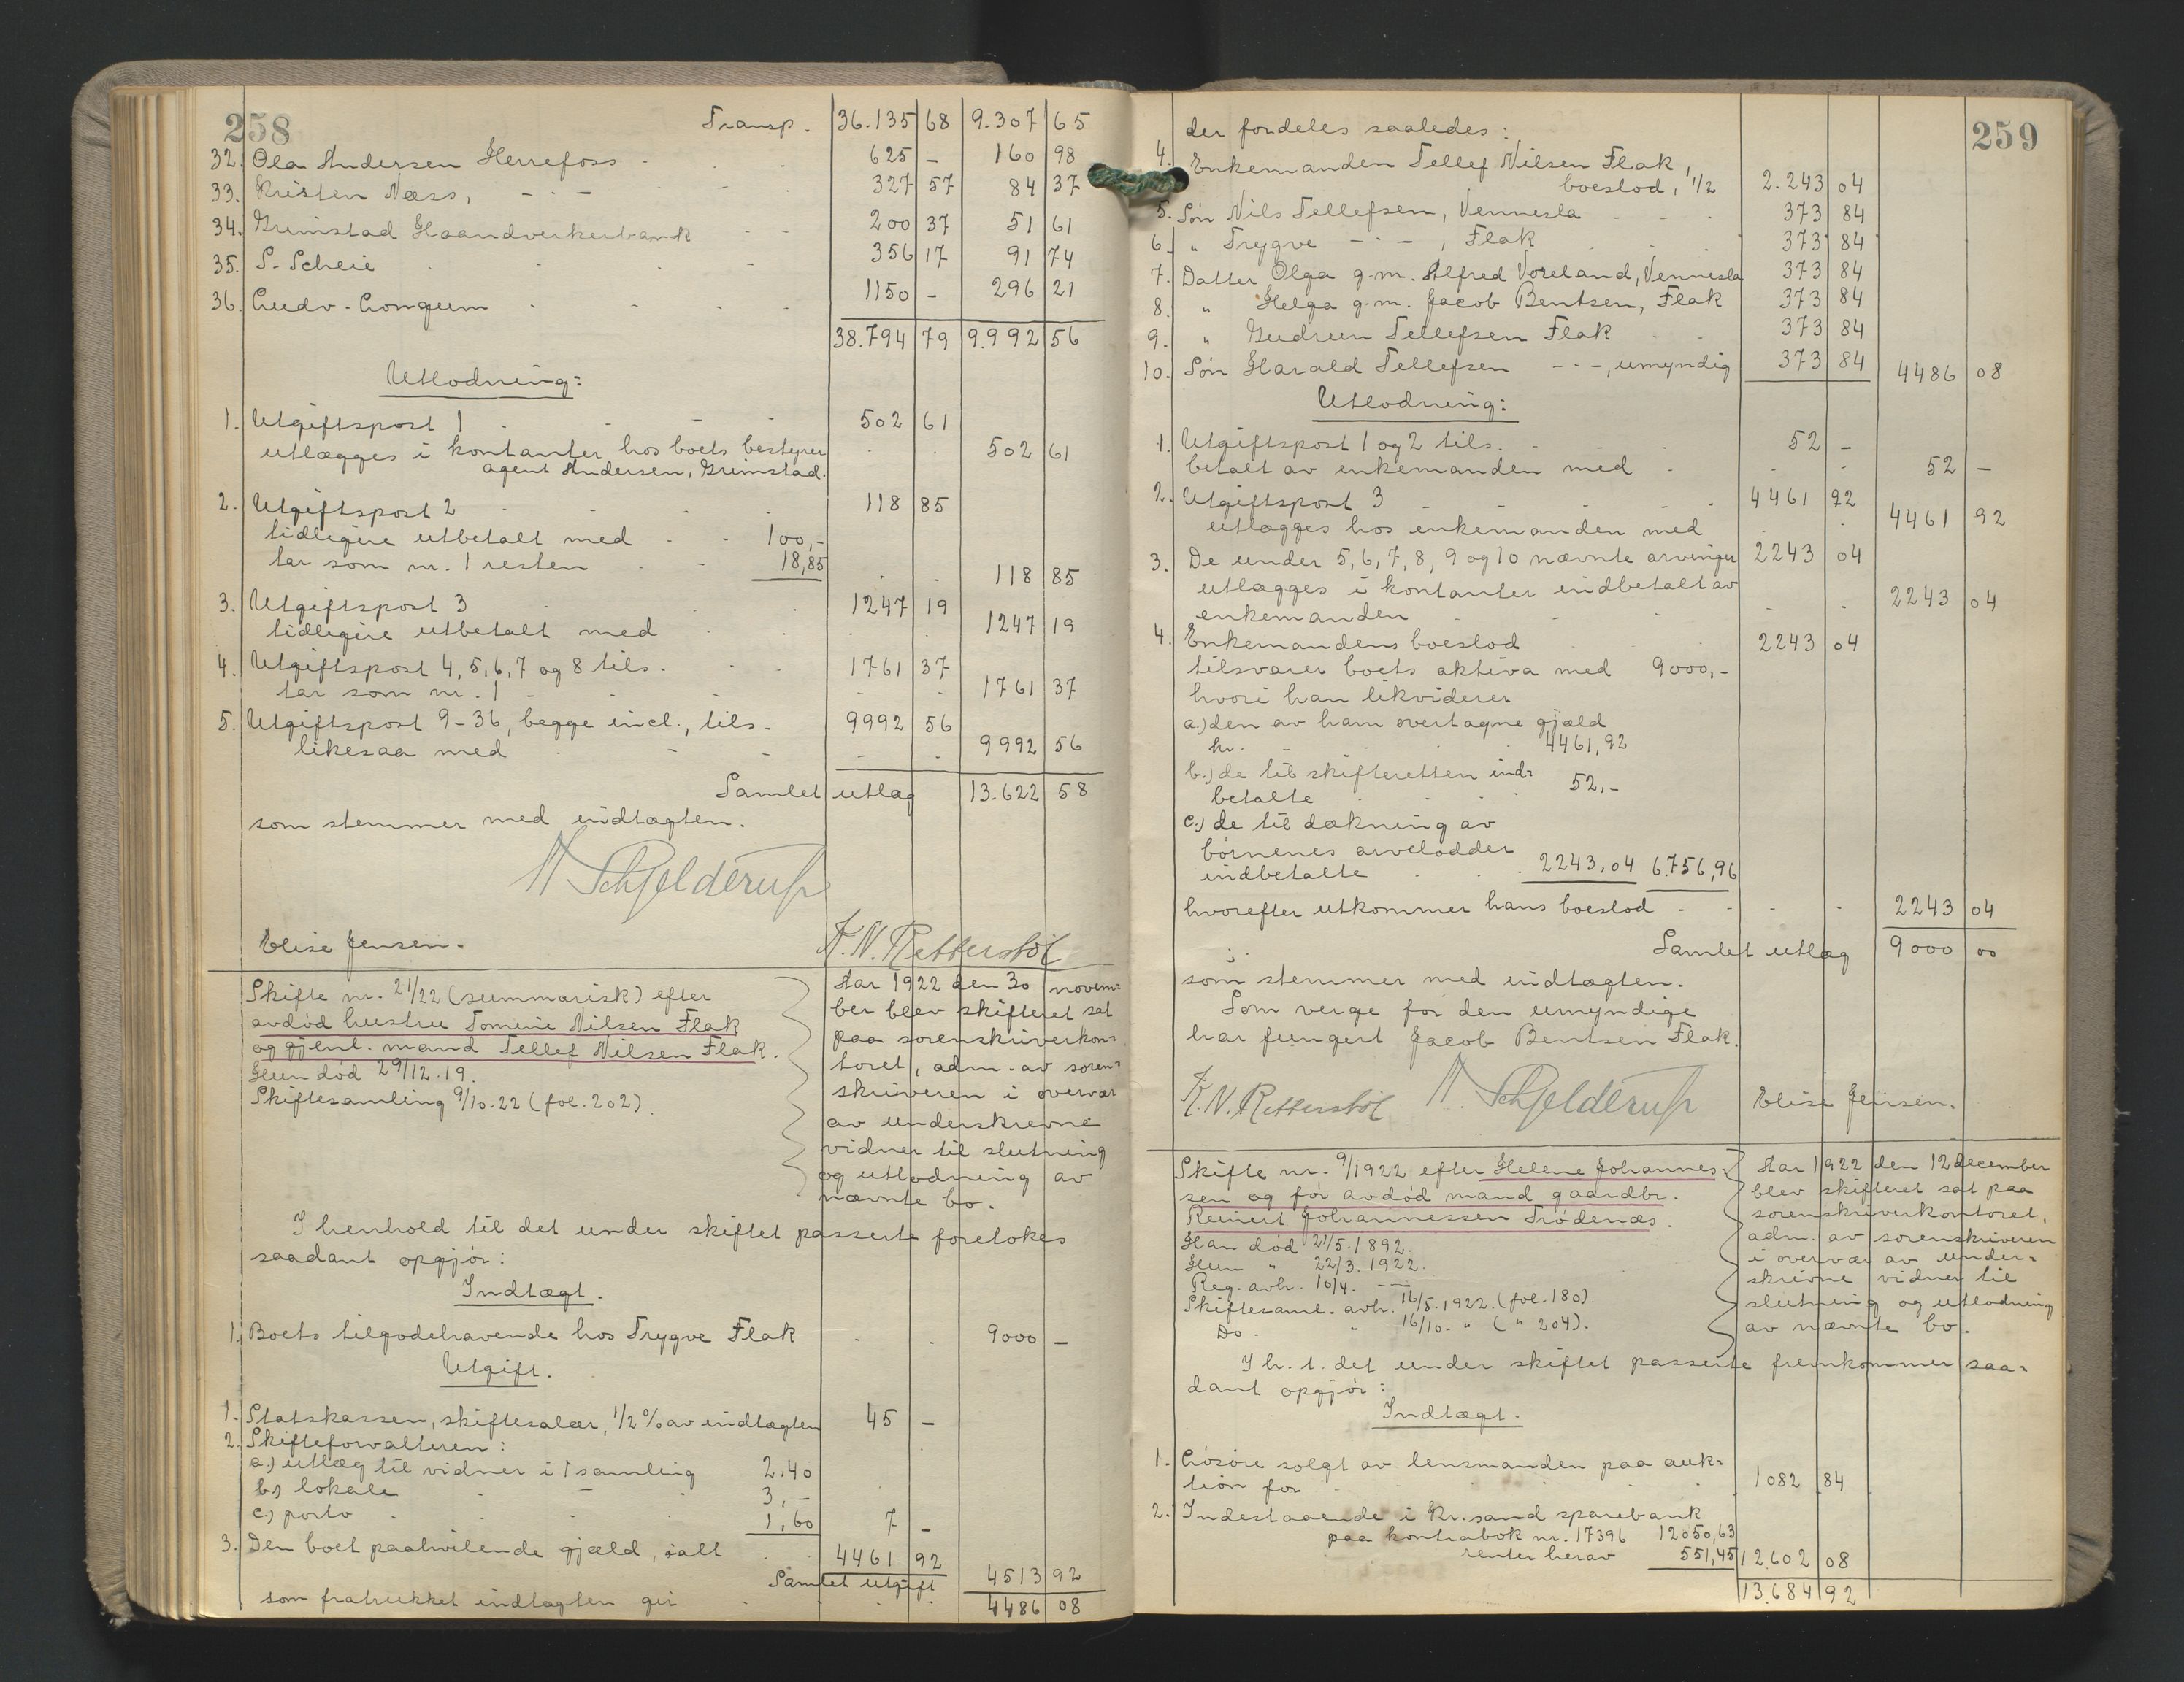 258
Transp. 36.135 68 9.307 65
32. Ola Andersen Herrefoss - 625 - 160 98
33. Kristen Næss, - · - 327 57 84 37
34. Grimstad Haandverkerbank 200 37 51 61
35. S. Scheie 356 17 91 74
36. Ludv. Longum 1150 - 296 21
38.794 79 9.992 56
Utlodning:
1. Utgiftspost 1 502 61
utlægges i kontanter hos boets bestyrer 502 61
agent Andersen, Grimstad.
2. Utgiftspost 2 118 85
tidligere utbetalt med 100,-
tar som nr. 1 resten 18,85 118 85
3. Utgiftspost 3 1247 19
tidligere utbetalt med 1247 19
4. Utgiftspost 4, 5, 6, 7 og 8 tils. 1761 37
tar som nr. 1 1761 37
5. Utgiftspost 9-36, begge incl., tils. 9992 56
likesaa med 9992 56
Samlet utlæg 13.622 58
som stemmer med indtægten.
N Schjelderup
Elise Jensen. K. N. Retterstöl
Skifte nr. 21/22 (summarisk) efter
avdød hustru Tomine Nilsen Flak
og gjenl. mand Tellef Nilsen Flak.
Hun død 29/12.19.
Skiftesamling 9/10.22 (fol. 202).
Aar 1922 den 30 novem=
ber blev skifteret sat
paa sorenskriverkon=
toret, adm. av soren=
skriveren i overvær
av underskrevne
vidner til slutning
og utlodning av
nævnte bo.
I henhold til det under skiftet passerte foretokes
saadant opgjør:
Indtægt.
1. Boets tilgodehavende hos Trygve Flak 9000 -
Utgift.
1. Statskassen, skiftesalær, 1/2 % av indtægten 45 -
2. Skifteforvalteren:
a.) utlæg til vidner i 1 samling 2,40
b.) lokale 3,-
c.) porto 1,60 7 -
3. Den boet paahvilende gjæld, ialt 4461 92
Samlet utgift 4513 92
som fratrukket indtægten gir 4486 08
259
der fordeles saaledes:
4. Enkemanden Tellef Nilsen Flak,
boeslod, 1/2 2.243 04
5. Søn Nils Tellefsen, Vennesla 373 84
6. " Trygve - · - , Flak 373 84
7. Datter Olga g.m. Alfred Voreland, Vennesla 373 84
8. " Helga g.m. Jacob Bentsen, Flak 373 84
9. " Gudrun Tellefsen Flak 373 84
10. Søn Harald Tellefsen - · -, umyndig 373 84 4486 08
Utlodning:
1. Utgiftspost 1 og 2 tils. 52 -
betalt av enkemanden med 52 -
2. Utgiftspost 3 4461 92
utlægges hos enkemanden med 4461 92
3. De under 5, 6, 7, 8, 9 og 10 nævnte arvinger 2243 04
utlægges i kontanter indbetalt av
enkemanden 2243 04
4. Enkemandens boeslod 2243 04
tilsvarer boets aktiva med 9000,-
hvori han likviderer
a.) den av ham overtagne gjæld
kr. 4461,92
b.) de til skifteretten ind=
betalte 52,-
c.) de til dækning av
børnenes arvelodder
indbetalte 2243,04 6.756,96
hvorefter utkommer hans boeslod 2243 04
Samlet utlæg 9000 00
som stemmer med indtægten.
Som verge for den umyndige
har fungert Jacob Bentsen Flak.
K. N. Retterstöl N. Schjelderup Elise Jensen.
Skifte nr. 9/1922 efter Helene Johannes=
sen og før avdød mand gaardbr.
Reinert Johannessen Trødenæs.
Han død 21/5.1892.
Hun " 22/3.1922.
Reg. avh. 10/4. - · -
Skiftesaml. avh. 16/5.1922. (fol. 180).
Do. " 16/10. " ( " 204).
Aar 1922 den 12 december
blev skifteret sat paa
sorenskriverkontoret,
adm. av sorenskriveren
i overvær av under=
skrevne vidner til
slutning og utlodning
av nævnte bo.
I h. t. det under skiftet passerte fremkommer saa=
dant opgjør:
Indtægt.
1. Løsøre solgt av lensmanden paa auk=
tion for 1082 84
2. Indestaaende i Kr.sand sparebank
paa kontrabok nr. 17396 12050,63
renter herav 551,45 12.602 08
13.684 92